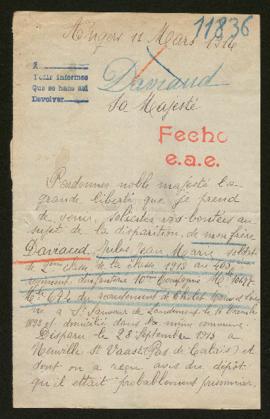 Angers 11 Mars 1916
11836
A
Pedir informes
Que se hans asi
Devolver
Darraud
Sa Majesté
Fecho
e.a.e.
Pardonnez noble majesté la
grande liberté que je prend
de venir solicité vos bontées au
sujet de la disparition de mon frère
Darraud Jules Jean Marie soldat
de 2ème de la classe 1913
regiment d'infanterie 10me Compagnie
Mle 692 du recrutement de Cholet
à St Sauveur de Landemont le 16
1893 et domicilié dans la même commune
Disparu le 28 Septembre 1915 à
Neuville St Vaast (Pas de Calais) et
dont on a reçu avis du dépôt
qu'il ettait probablement prisonnier.